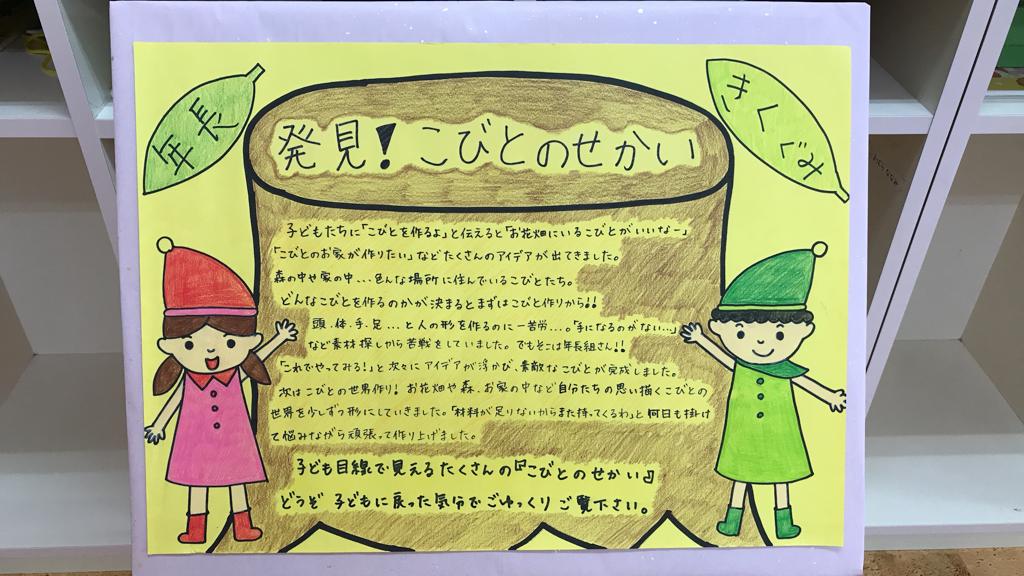 年長
きくぐみ
発見！こびとのせかい
子どもたちに「こびとを作るよ」と伝えると「お花畑にいるこびとがいいなー」
「こびとのお家が作りたい」などたくさんのアイデアが出てきました。
森の中や家の中…色んな場所に住んでいるこびとたち。
どんなこびとを作るのかが決まるとまずはこびと作りから!!
頭.体.手.足…と人の形を作るのに一苦労…。「手になるのがない…」
など素材探しから苦戦をしていました。でもそこは年長組さん!!
「これでやってみる!」と次々にアイデアが浮かび、素敵なこびとが完成しました。
次はこびとの世界作り! お花畑や森.お家の中など自分たちの思い描くこびとの
世界を少しずつ形にしていきました。「材料が足りないからまた持ってくるわ」と何日も掛け
て悩みながら頑張って作り上げました。
子ども目線で見えるたくさんの『こびとのせかい』
どうぞ 子どもに戻った気分でごゆっくりご覧下さい。